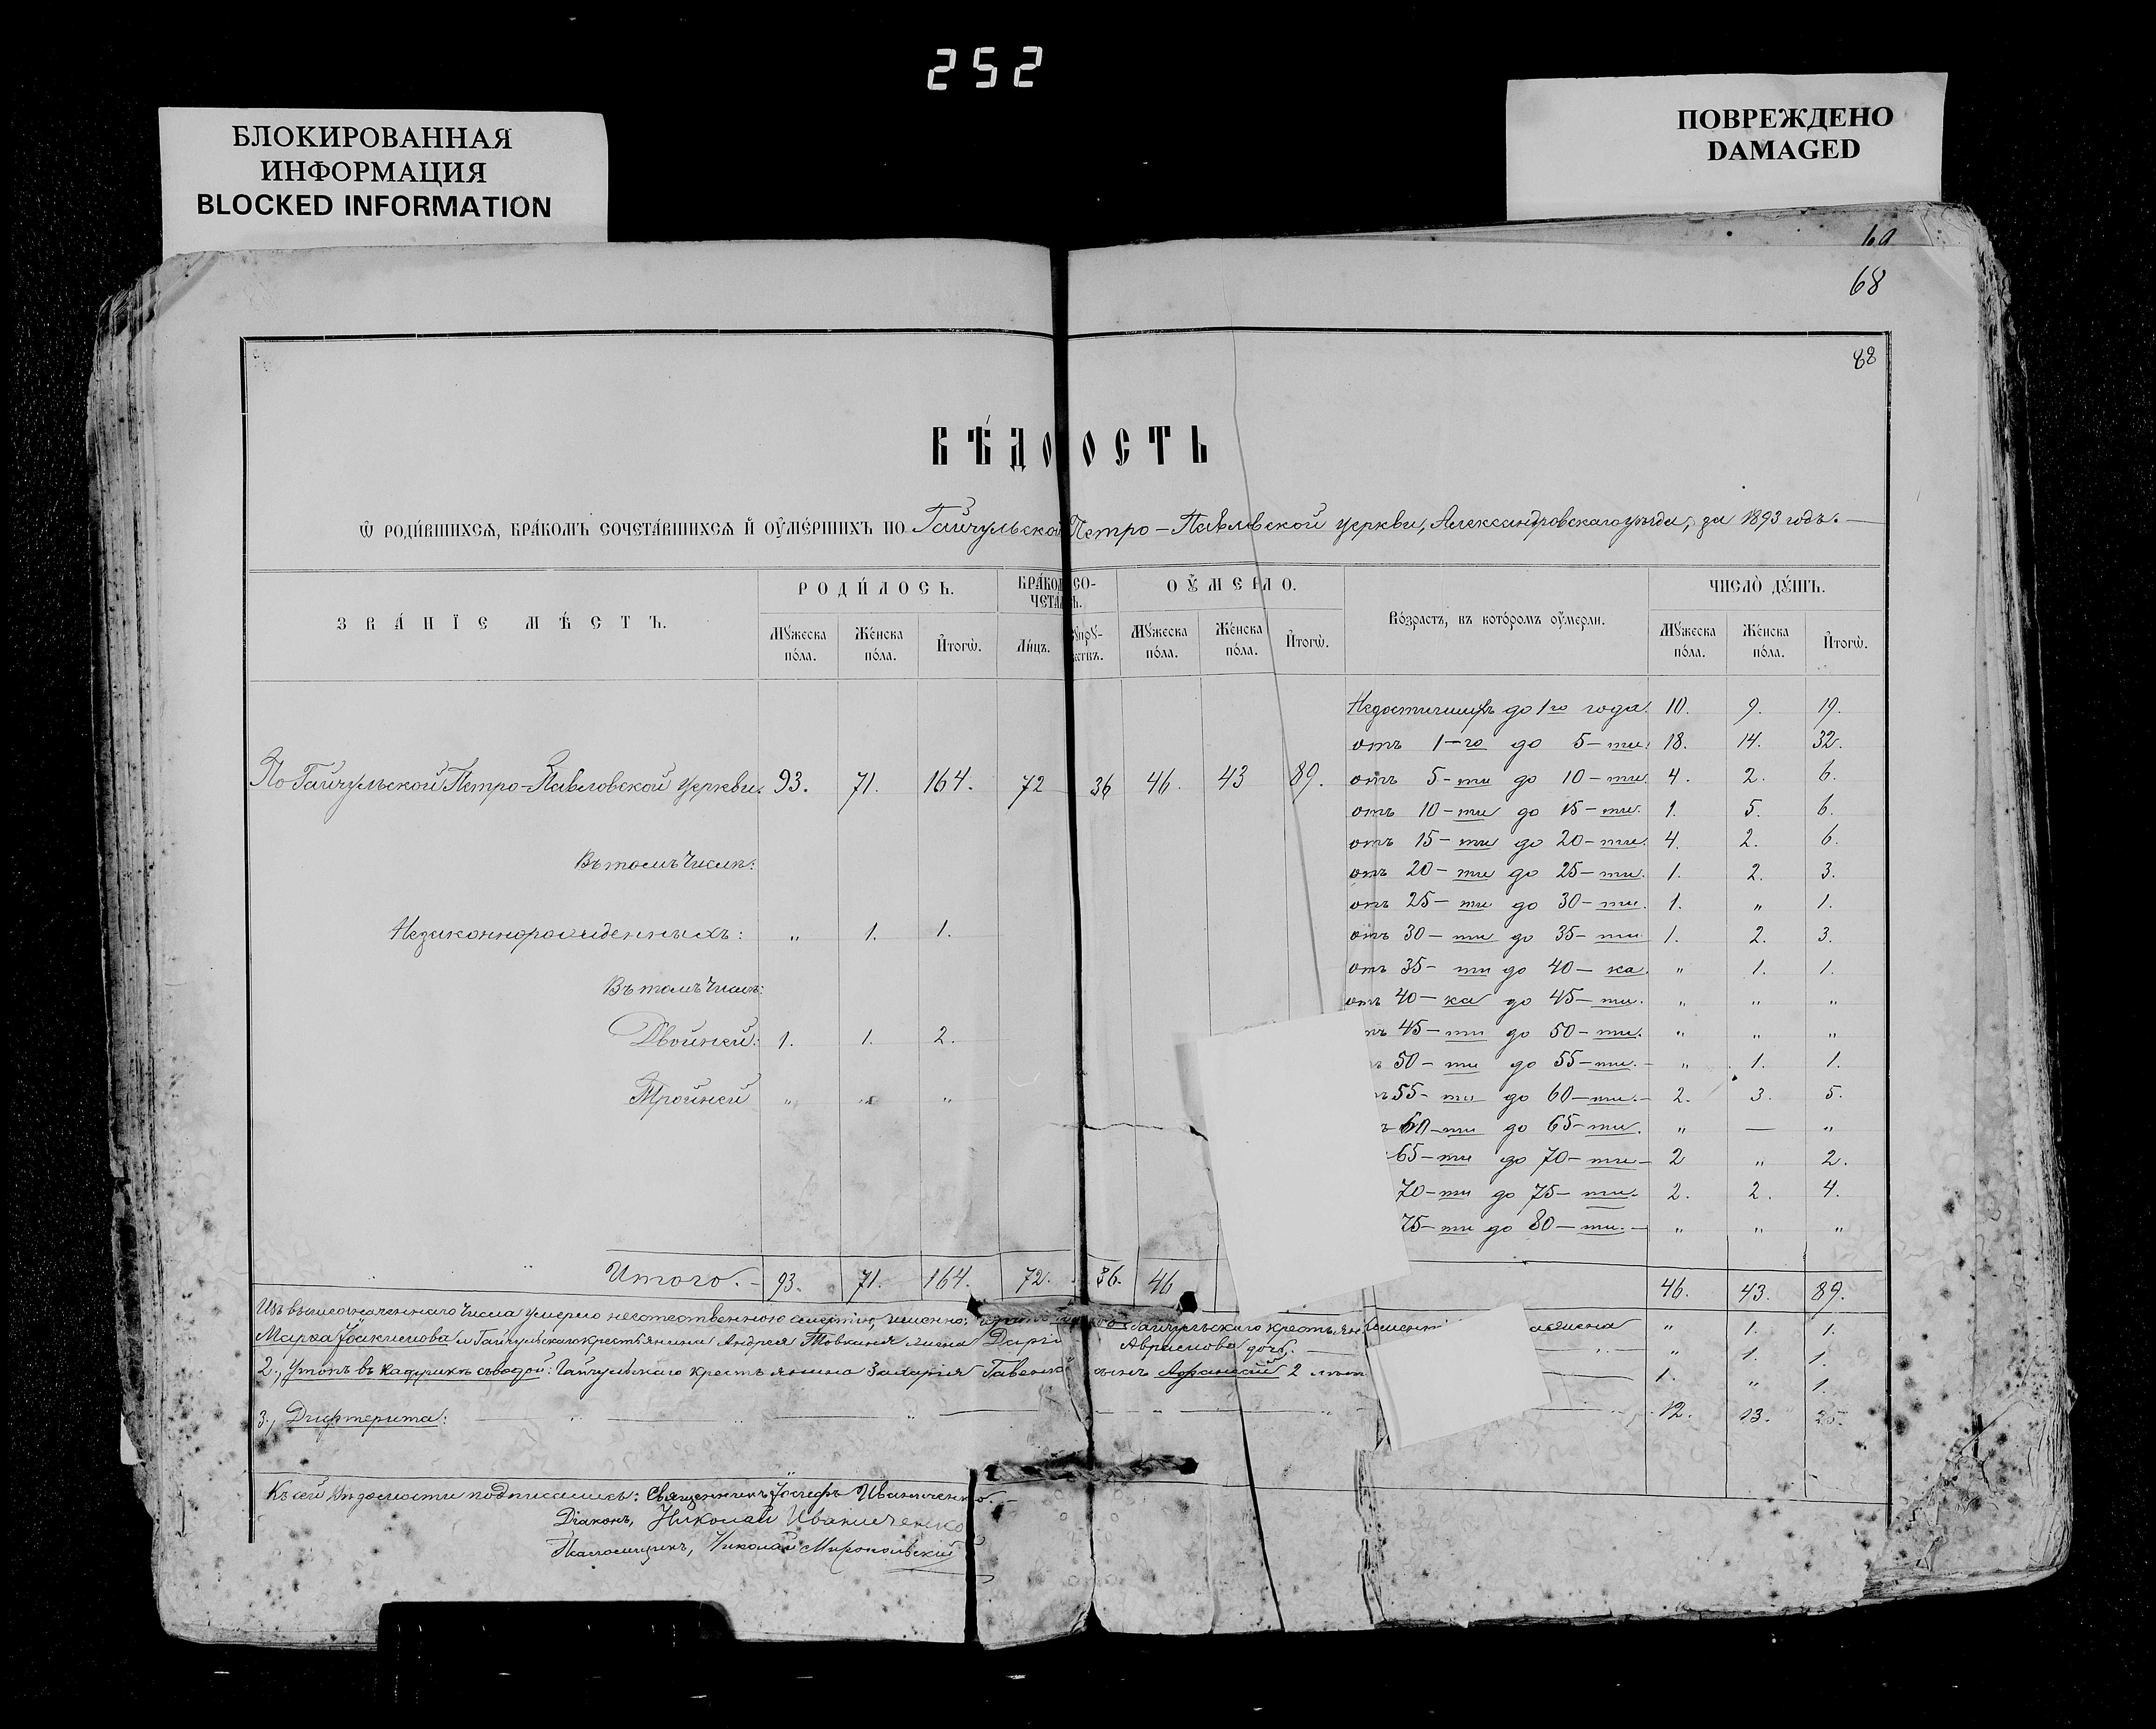 252
БЛОКИРОВАННАЯ
ИНФОРМАЦИЯ
BLOCKED INFORMATION
ПОВРЕЖДЕНО
DAMAGED
68
ВѢ́ДО ОСТЬ
Ѡ҆ РОДИ́ВШИХСѦ, БРА́КОМЪ СОЧЕТА́ВШИХСѦ И҆ ОУ҆МЕ́РШИХЪ ПО Гайчульской Петро-Павловской церкви, Александровскаго уѣзда, за 1893 годъ.
ЗВА́НІЕ МѢ́СТЪ. РОДИ́ЛОСЬ. БРА́КОМ СО-ЧЕТА Ъ. ОУ҆́МЕРЛО. Во́зрастъ, въ кото́ромъ оу҆́мерли. ЧИСЛО̀ ДꙊ́ШЪ.
Мꙋ́жеска по́ла. Же́нска по́ла. И҆того̀. Ли́цъ. упрꙋ́-ествъ. Мꙋ́жеска по́ла. Же́нска по́ла. И҆того̀. Мꙋ́жеска по́ла. Же́нска по́ла. И҆того̀.
Недостигшихъ до 1го года. 10. 9. 19.
отъ 1-го до 5-ти. 18. 14. 32.
По Гайчульской Петро-Павловской церкви. 93. 71. 164. 72 36 46. 43 89. отъ 5-ти до 10-ти 4. 2. 6.
отъ 10-ти до 15-ти. 1. 5. 6.
отъ 15-ти до 20-ти. 4. 2. 6.
Въ томъ числѣ:
отъ 20-ти до 25-ти. 1. 2. 3.
отъ 25-ти до 30-ти. 1. „ 1.
Незаконнорожденныхъ: „ 1. 1. отъ 30-ти до 35-ти 1. 2. 3.
отъ 35-ти до 40-ка. „ 1. 1.
Въ томъ числѣ:
отъ 40-ка до 45-ти. „ „ „
Двойней: 1. 1. 2. тъ 45-ти до 50-ти. „ „ „
ъ 50-ти до 55-ти. „ 1. 1.
Тройней „ „ „ ъ 55-ти до 60-ти. 2. 3. 5.
ъ 60-ти до 65-ти. „ — „
65-ти до 70-ти 2 „ 2.
70-ти до 75-ти. 2. 2. 4.
75-ти до 80-ти. „ „ „
Итого. 93. 71. 164. 72. 36. 46 46. 43. 89.
Изъ вышеозначеннаго числа умерло неестественною смертію, именно: Гайчульскаго крестьян „ 1. 1.
Марка и Гайчульскаго крестьянина Андрея жена Дарья „ 1. 1.
2., Утопъ въ кадушкѣ съ водой: Гайчульскаго крестьянина Захарія сынъ Афанасій 2 лѣт 1. „ 1.
3., Дифтерита: 12. 13. 25.
Къ сей вѣдомости подписались: Священникъ Іосифъ Иваниченко.
Діаконъ, Николай Иваниченко
Псаломщикъ, Николай Миропольскій